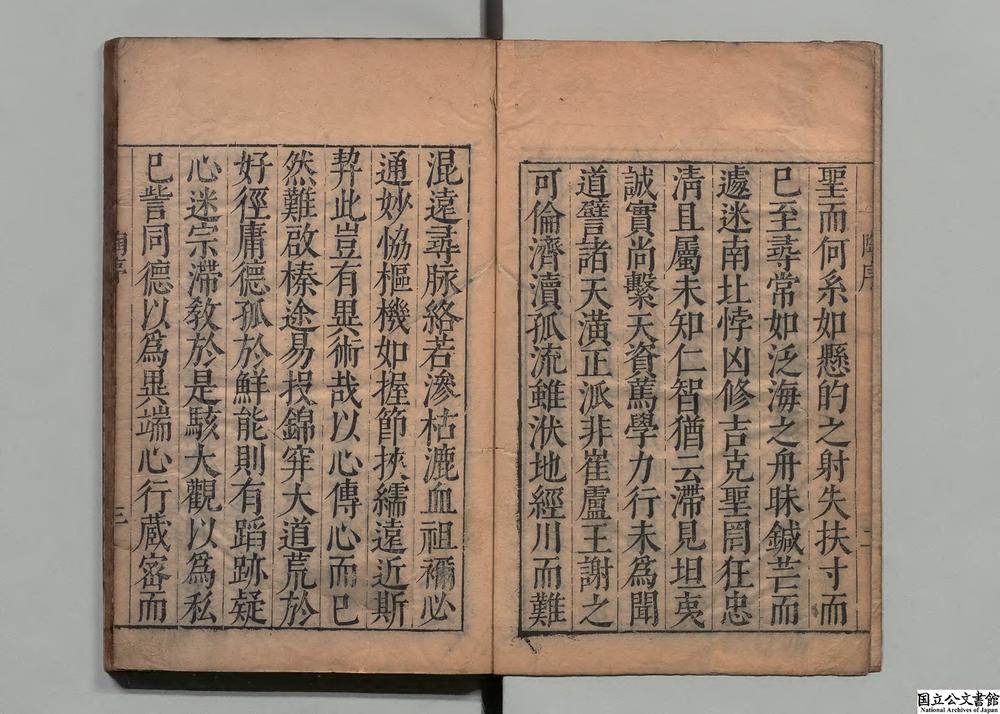 聖而何系如懸的之射失扶寸而
巳至尋常如泛海之舟昧鍼芒而
遽迷南北悖凶修吉克聖罔狂忠
淸且屬未知仁智猶云滯見坦夷
誠實尚繫天資篤學力行未爲聞
道譬諸天潢正派非崔盧王謝之
可倫濟瀆孤流雖洑地經川而難
混遠尋脉絡若滲枯漉血祖禰必
通妙恊樞機如握節挾繻遠近斯
契此豈有異術哉以心傳心而巳
然難啟榛途易投錦穽大道荒於
好徑庸德孤於鮮能則有蹈跡疑
心迷宗滯敎於是駭大觀以爲私
巳訾同德以爲異端心行蔵宻而
序
二
序
三
国立公文書館
National Archives of Japan